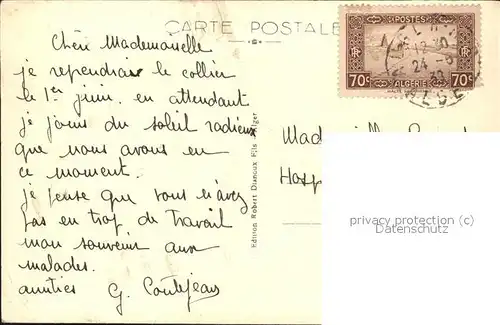 CARTE POSTALE
Chère Mademoiselle
je reprendrai le collier
le 1er juin. en attendant
je jouis du soleil radieux
que nous avons en
ce moment.
je pense que vous n'avez
pas en trop de travail
mon souvenir aux
malades.
amitiés G. Contejean
Edition Robert Dianoux Fils Alger
POSTES
RF
70c ALGERIE 70c
24
Hosp
privacy protection (c)
Datenschutz